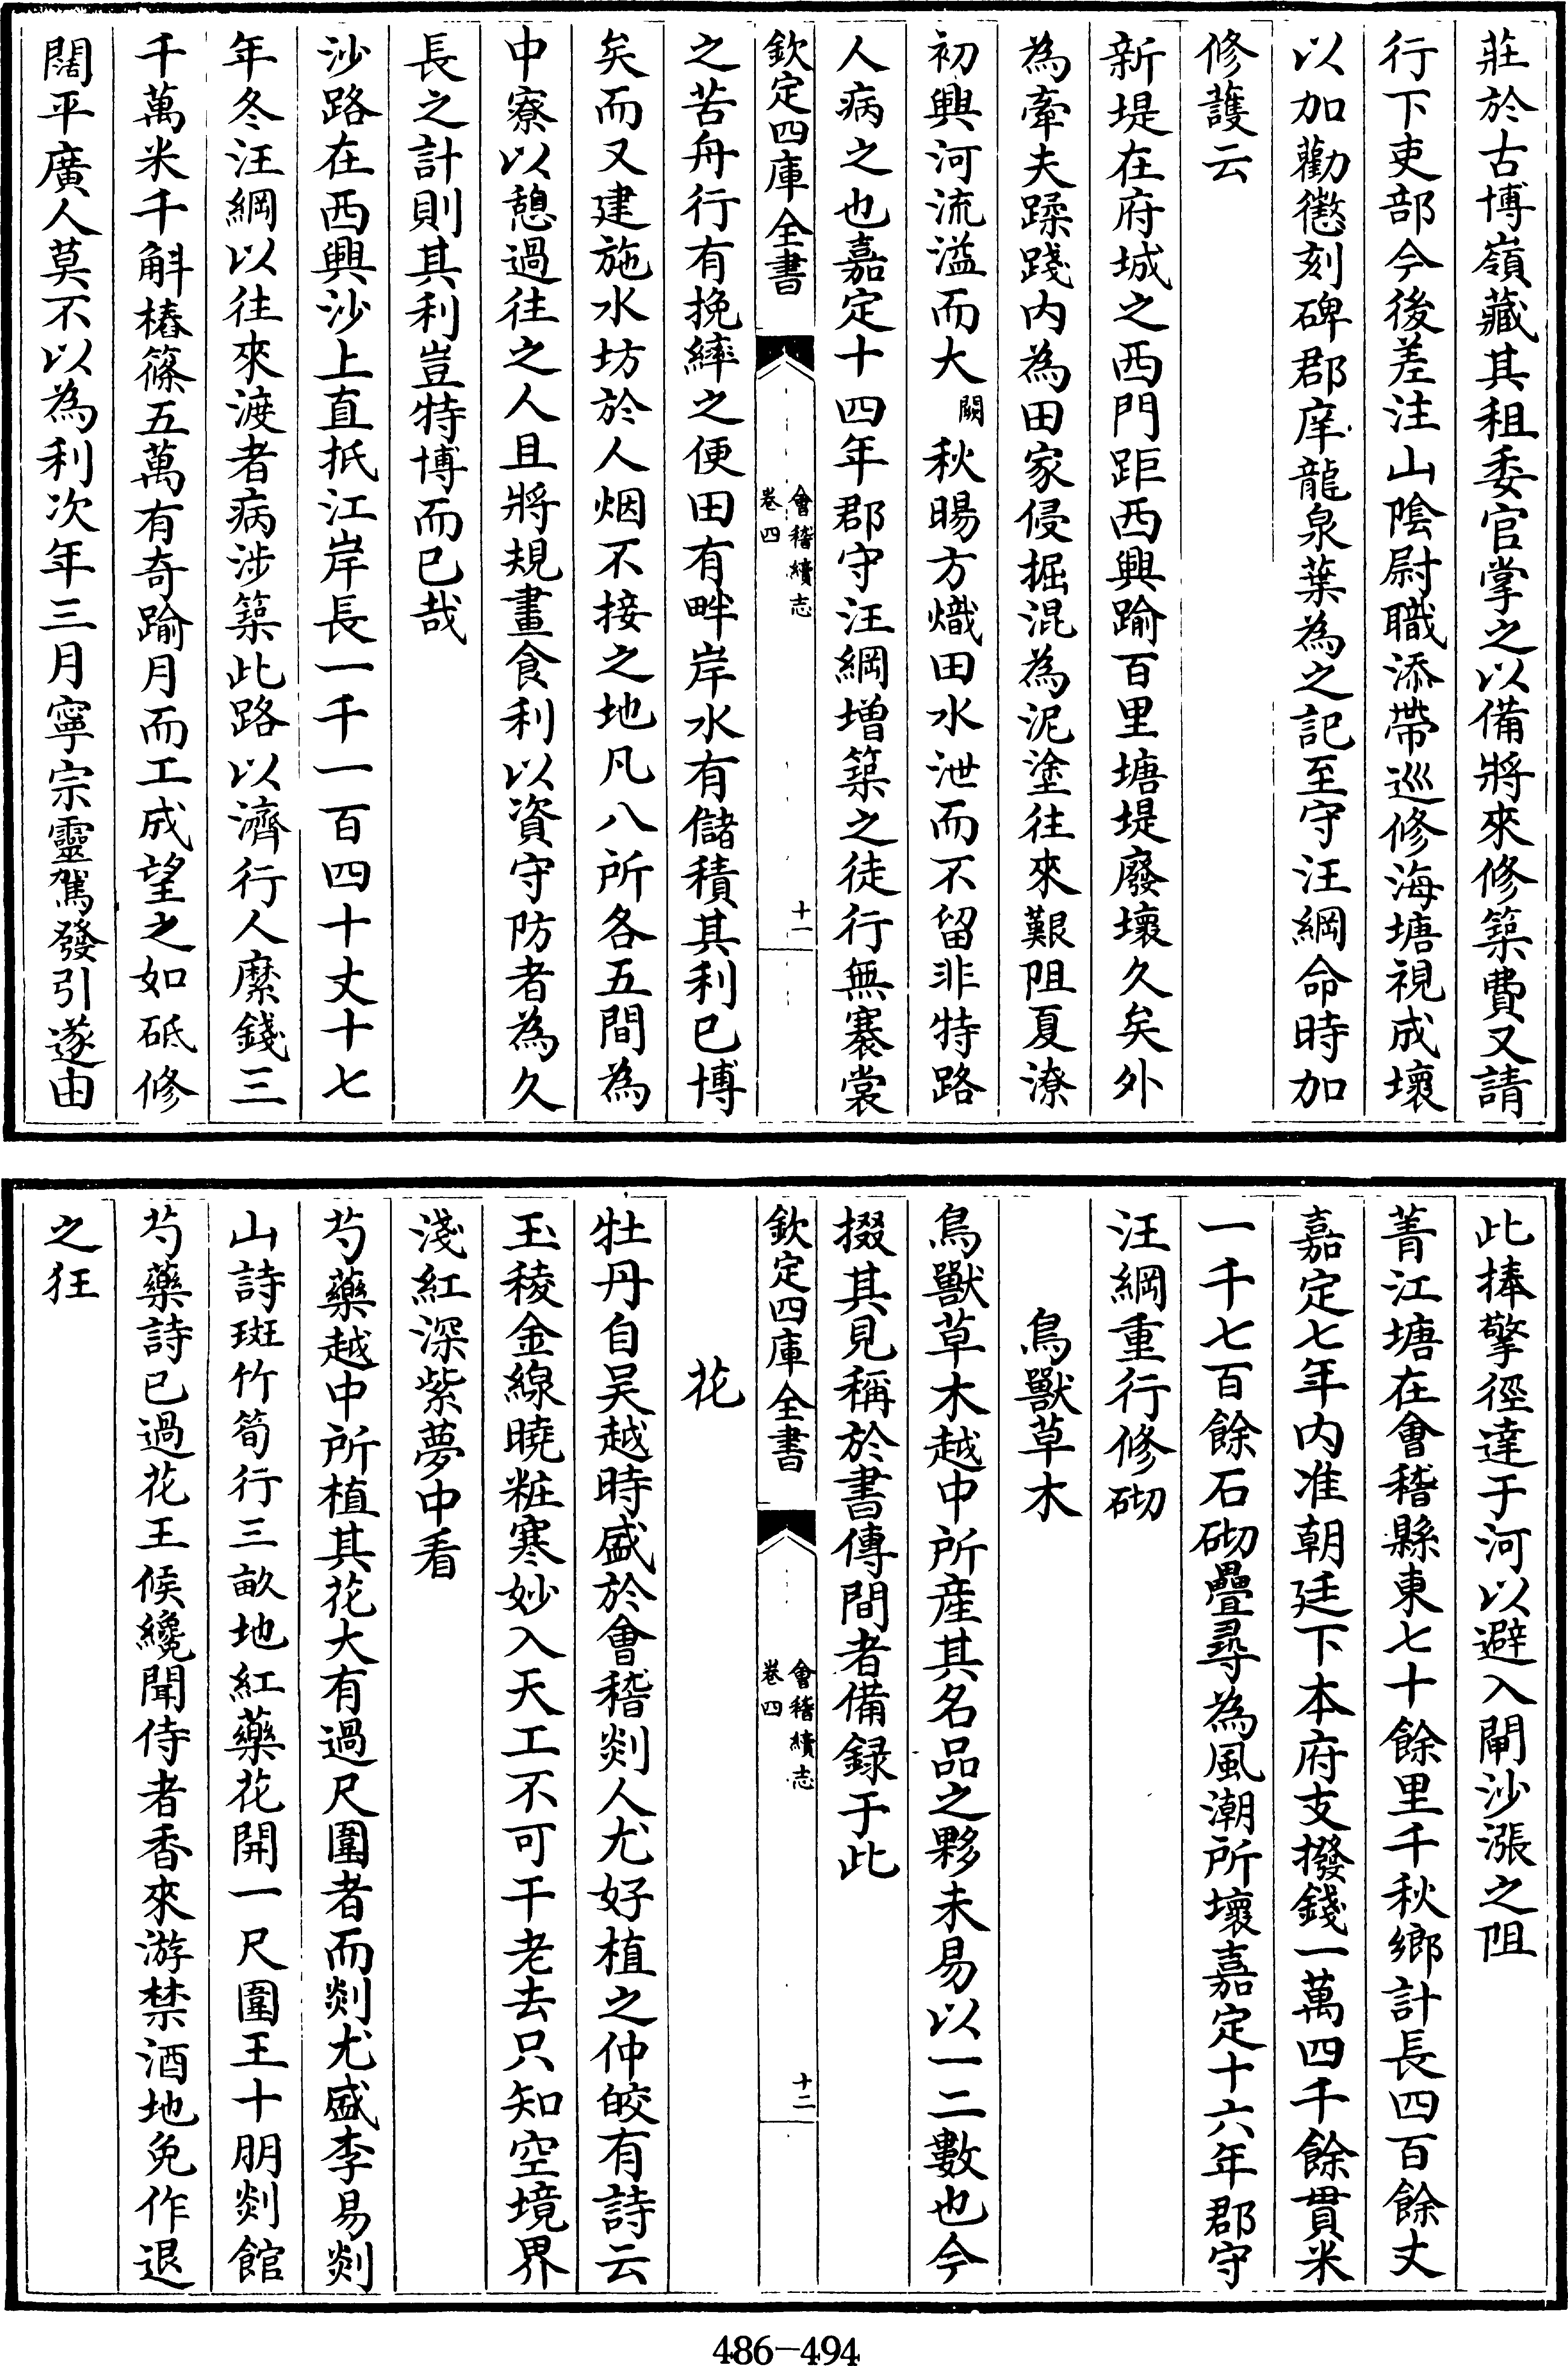 莊於古博嶺藏其租委官掌之以備將來修築費又請
行下吏部今後差注山陰尉職添帶巡修海塘視成壞
以加勸懲刻碑郡庠龍泉葉為之記至守汪綱命時加
修護云
新堤在府城之西門距西興踰百里塘堤廢壞久矣外
為牽夫蹂踐内為田家侵掘混為泥塗往來艱阻夏潦
初興河流溢而大闕秋暘方熾田水泄而不留非特路
人病之也嘉定十四年郡守汪綱増築之徒行無褰裳
欽定四庫全書
會稽續志
卷四
十一
之苦舟行有挽繂之便田有畔岸水有儲積其利已博
矣而又建施水坊於人烟不接之地凡八所各五間為
中寮以憩過往之人且將規畫食利以資守防者為久
長之計則其利豈特博而已哉
沙路在西興沙上直抵江岸長一千一百四十丈十七
年冬汪綱以往來渡者病涉築此路以濟行人縻錢三
千萬米千斛樁篠五萬有奇踰月而工成望之如砥修
闊平廣人莫不以為利次年三月寧宗靈駕發引遂由
此捧擎徑達于河以避入閘沙漲之阻
菁江塘在會稽縣東七十餘里千秋鄉計長四百餘丈
嘉定七年内准朝廷下本府支撥錢一萬四千餘貫米
一千七百餘石砌疊尋為風潮所壞嘉定十六年郡守
汪綱重行修砌
鳥獸草木
鳥獸草木越中所産其名品之夥未易以一二數也今
掇其見稱於書傳間者備録于此
欽定四庫全書
會稽續志
卷四
十二
花
牡丹自吴越時盛於會稽剡人尤好植之仲皎有詩云
玉稜金線曉粧寒妙入天工不可干老去只知空境界
淺紅深紫夢中看
芍藥越中所植其花大有過尺圍者而剡尤盛李易剡
山詩斑竹筍行三畝地紅藥花開一尺圍王十朋剡館
芍藥詩已過花王候纔聞侍者香來游禁酒地免作退
之狂
486-494